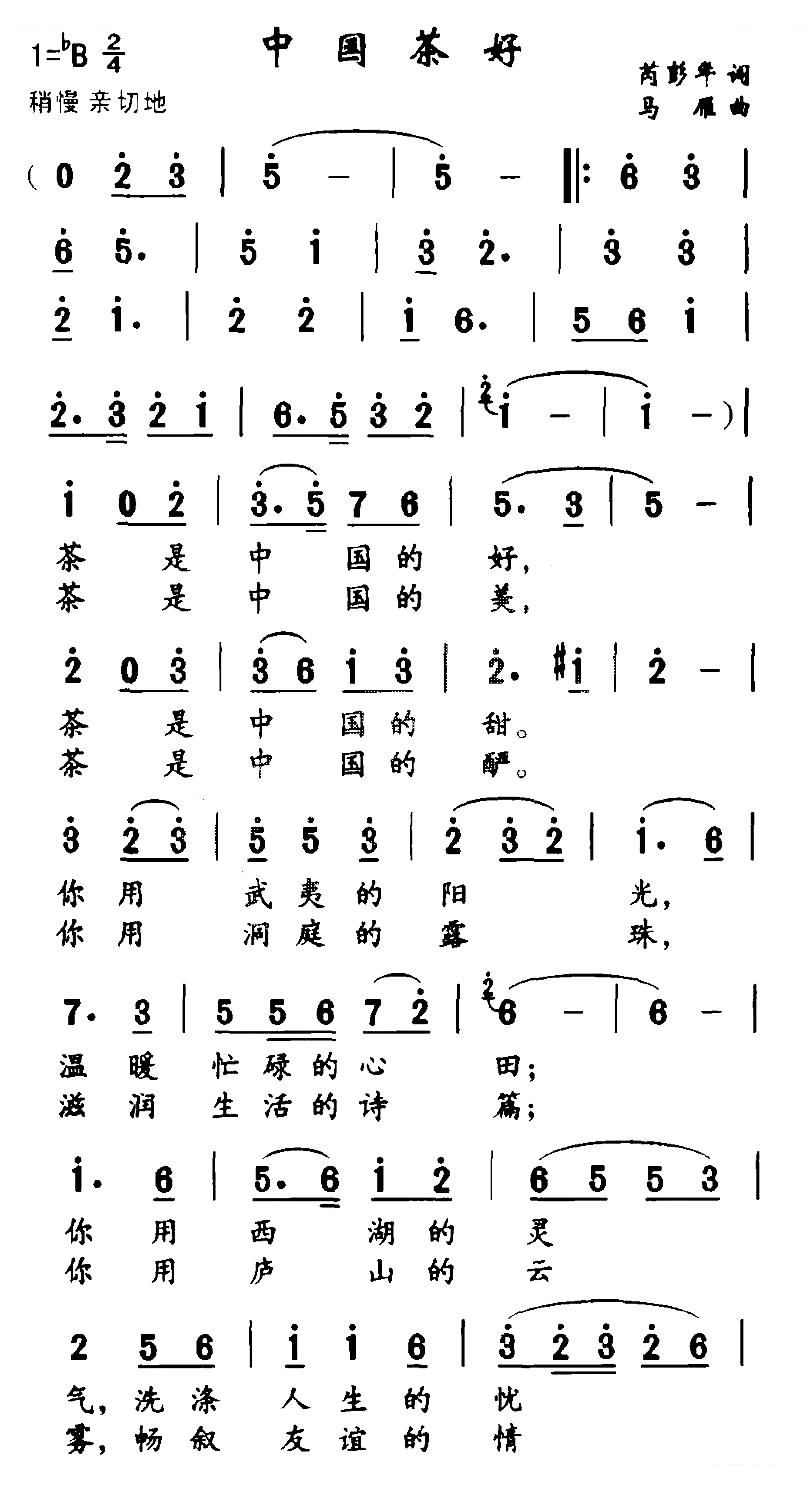 中国茶好
1=♭B 2/4
芮彭华 词
稍慢 亲切地
马雁 曲
( 0 2̇ 3̇ | 5̇ - | 5̇ - ‖: 6̇ 3̇ |
6̇ 5̇. | 5̇ 1̇ | 3̇ 2̇. | 3̇ 3̇ |
2̇ 1̇. | 2̇ 2̇ | 1̇ 6. | 5 6 1̇ |
2̇. 3̇ 2̇ 1̇ | 6. 5̇ 3̇ 2̇ | 2̇ 1̇ - | 1̇ - ) |
1̇ 0 2̇ | 3̇. 5̇ 7 6 | 5. 3 | 5 - |
茶 是 中 国 的 好,
茶 是 中 国 的 美,
2̇ 0 3̇ | 3̇ 6 1̇ 3̇ | 2̇. #1̇ | 2̇ - |
茶 是 中 国 的 甜。
茶 是 中 国 的 酽。
3̇ 2̇ 3̇ | 5̇ 5̇ 3̇ | 2̇ 3̇ 2̇ | 1̇. 6 |
你 用 武 夷 的 阳 光,
你 用 洞 庭 的 露 珠,
7. 3 | 5 5 6 7 2̇ | 2̇ 6 - | 6 - |
温 暖 忙 碌 的 心 田;
滋 润 生 活 的 诗 篇;
1̇. 6 | 5. 6 1̇ 2̇ | 6 5 5 3 |
你 用 西 湖 的 灵
你 用 庐 山 的 云
2 5 6 | 1̇ 1̇ 6 | 3̇ 2̇ 3̇ 2̇ 6 |
气, 洗 涤 人 生 的 忧
雾, 畅 叙 友 谊 的 情